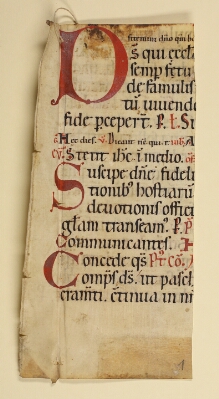 D
s̄ qui eccl
semp fetu
de famulis
tū uiuend
fide peceper̄t. P. ł. S
Hec dies. v̄. Dicant nē. qui. r.
Stetit ihc̄. i medio.
Suscipe dn̄e. fideli
tionib; hostiarū
deuotionis offici
głam transeam;. P.
Communicantes. H
Concede qs̄ Pt. cō.
Comp̄s ds̄. ut pasch
ctinua in n
1